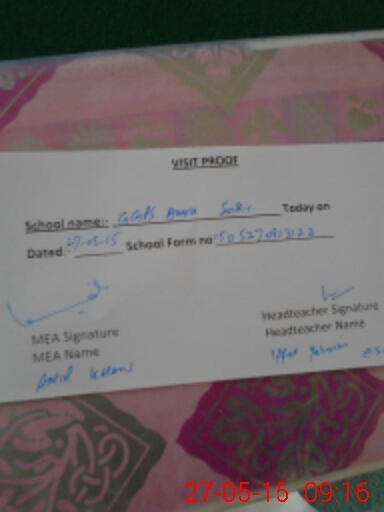 VISIT PROOF
School name:- GGPS Soki Today on
Dated:- 27-05-15 School Form no 150527091322
MEA Signature
MEA Name
Headteacher Signature
Headteacher Name
27-05-15 09:16